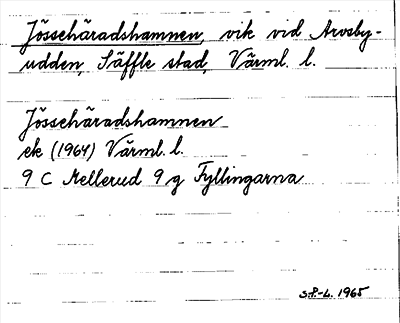 Jössehäradshamnen, vik vid Arvsby-
udden, Säffle stad, Värml. l.
Jössehäradshamnen
ek (1964) Värml. l.
9 C Mellerud 9 g Fyllingarna
S.P-L. 1965